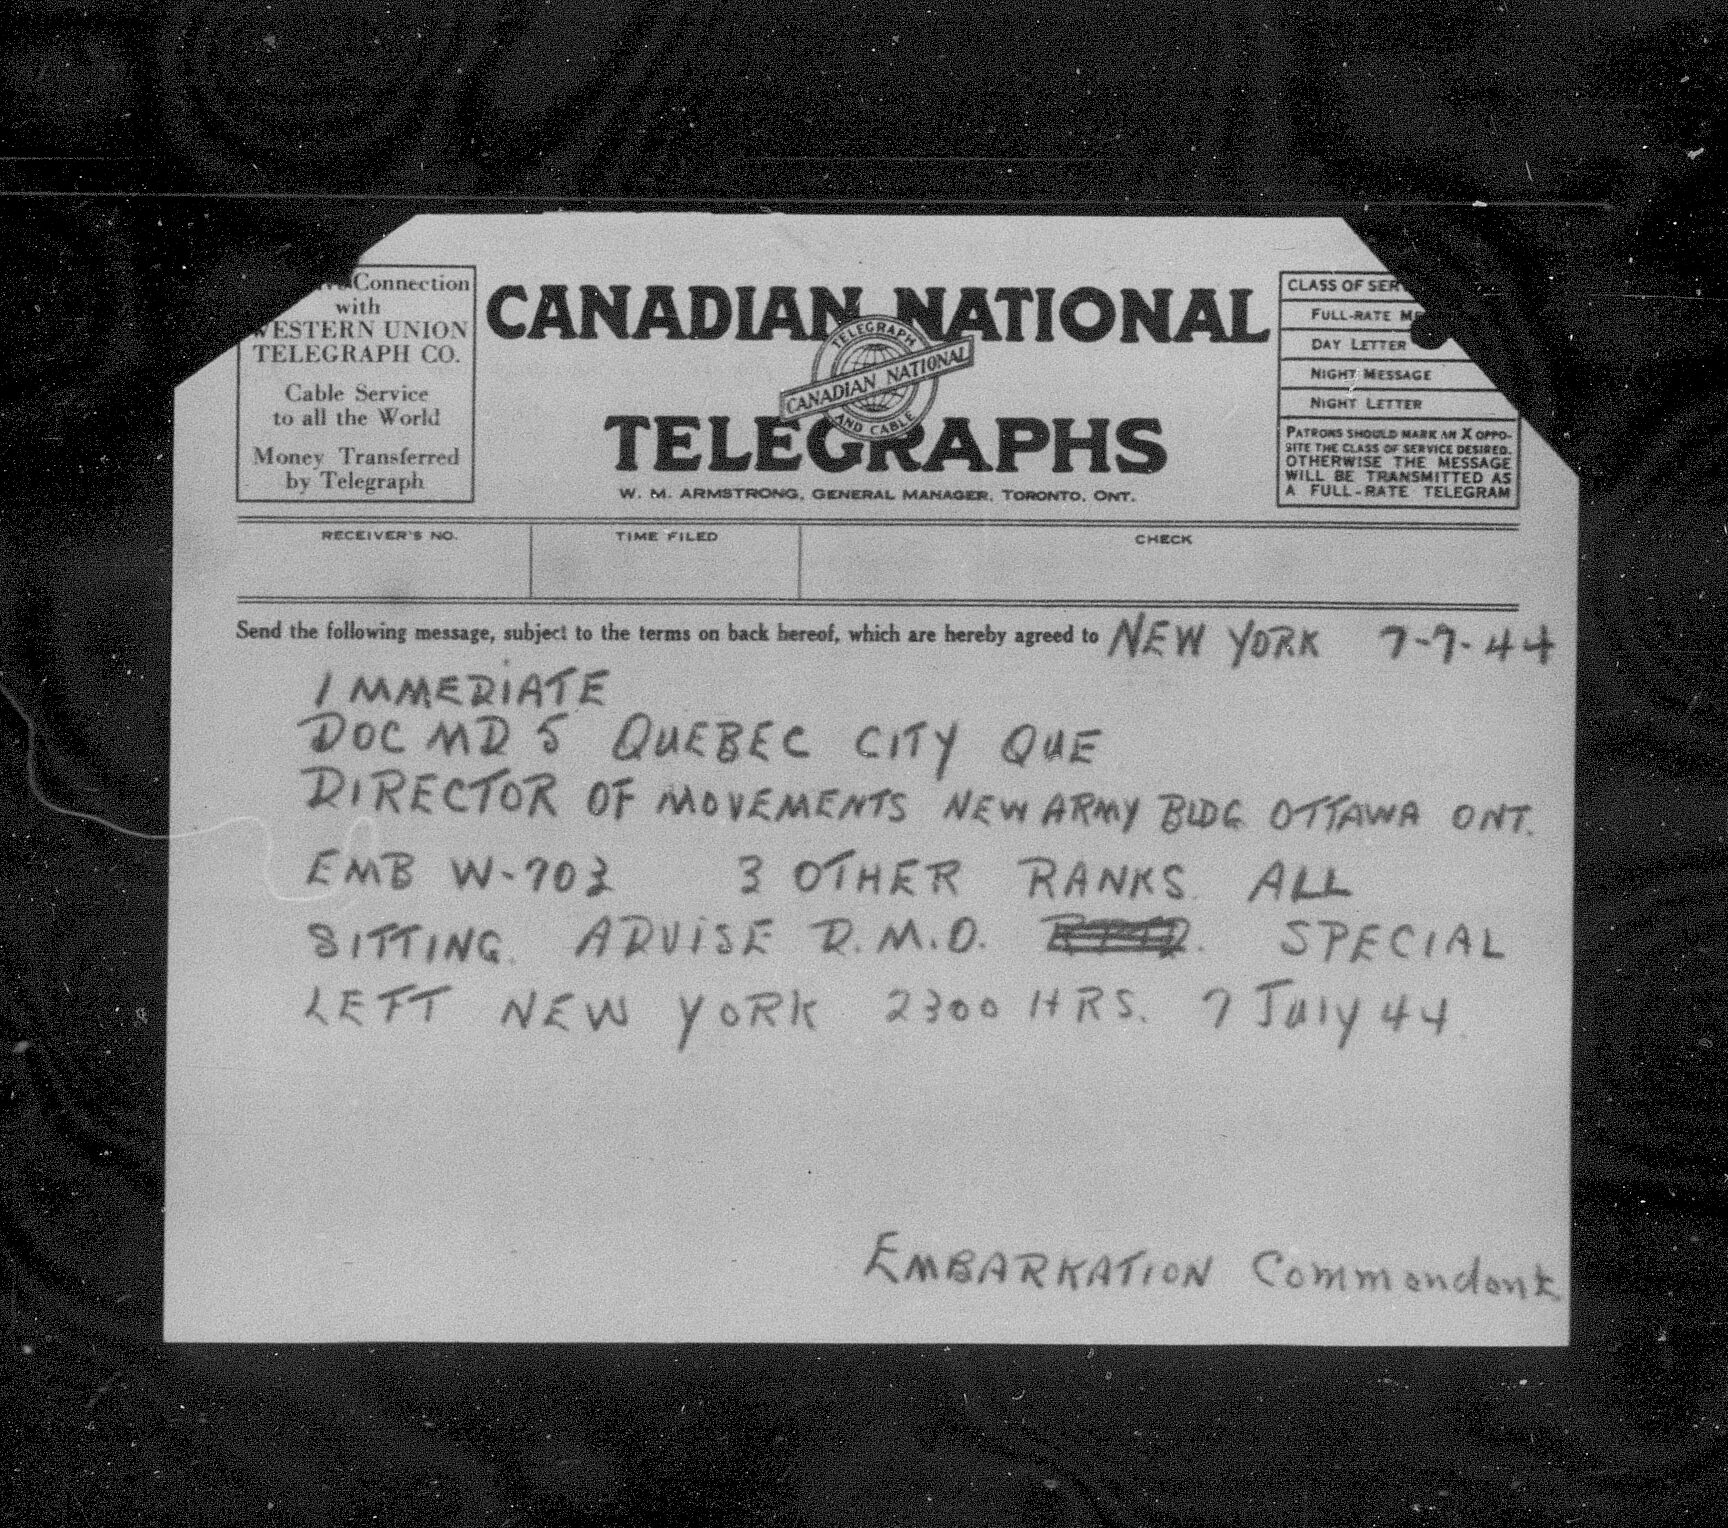 Connection
with
WESTERN UNION
TELEGRAPH CO.
Cable Service
to all the World
Money Transferred
by Telegraph
CANADIAN NATIONAL
TELEGRAPH
CANADIAN NATIONAL
AND CABLE
TELEGRAPHS
W. M. ARMSTRONG, GENERAL MANAGER, TORONTO, ONT.
CLASS OF SER
FULL-RATE ME
DAY LETTER
NIGHT MESSAGE
NIGHT LETTER
PATRONS SHOULD MARK AN X OPPO-
SITE THE CLASS OF SERVICE DESIRED.
OTHERWISE THE MESSAGE
WILL BE TRANSMITTED AS
A FULL-RATE TELEGRAM
RECEIVER'S NO. TIME FILED CHECK
Send the following message, subject to the terms on back hereof, which are hereby agreed to NEW YORK 7-7-44
IMMEDIATE
DOC MD 5 QUEBEC CITY QUE
DIRECTOR OF MOVEMENTS NEW ARMY BLDG OTTAWA ONT.
EMB W-703 3 OTHER RANKS. ALL
SITTING. ADVISE D.M.O. SPECIAL
LEFT NEW YORK 2300 HRS. 7 July 44.
EMBARKATION Commandant